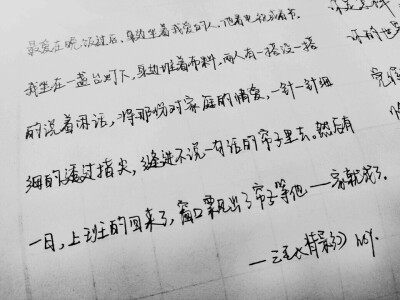 最爱在晚饭过后，身边坐着我爱的人，他看电视或看书，
我坐在一盏台灯下，身边堆着布料，两人有一搭没一搭
的说着闲话，将那份对家庭的情爱，一针一针细
细的透过指尖，缝进不说一句话的帘子里去。然后有
一日，上班的回来了，窗口飘出了帘子等他——家就成了。
——三毛《背影》